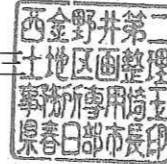 西金野井第二
土地区画整理
事務所専用埼玉
県春日部市長印